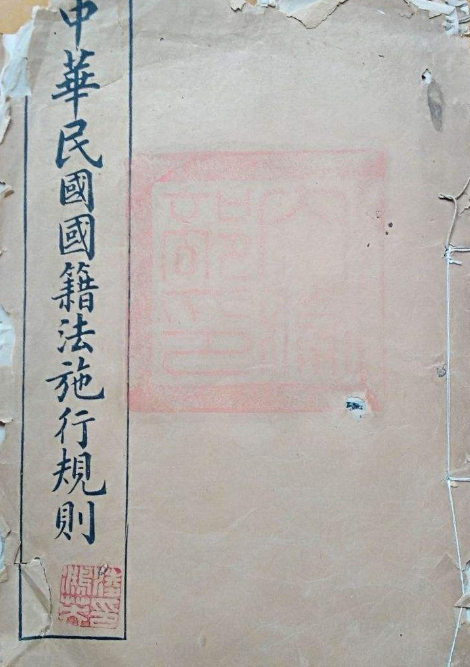 中華民國國籍法施行規則